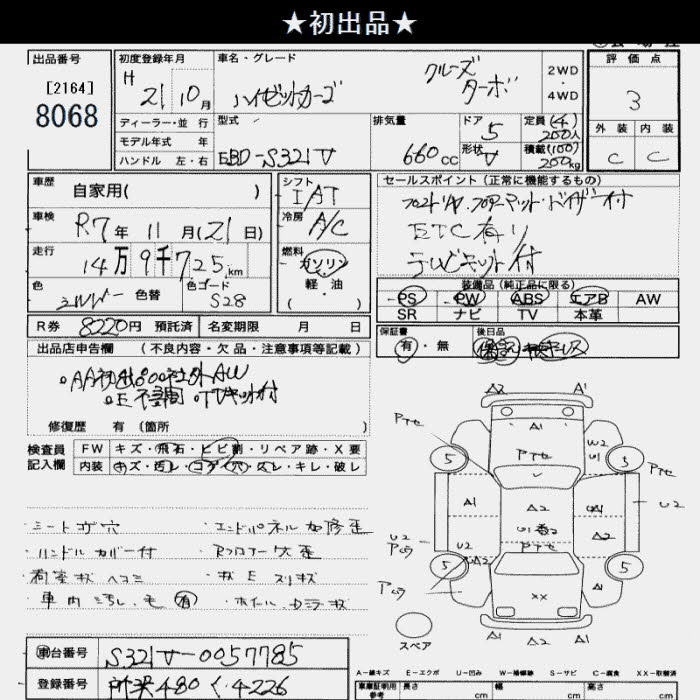 ★初出品★
出品番号
[2164]
8068
初度登録年月
H 21 10月
車名・グレード
ハイゼットカーゴ クルーズ ターボ
2WD
・
4WD
評価点
3
外装 内装
C C
ディーラー・並行
モデル年式 年
ハンドル 左・右
型式
EBD-S321V
排気量
660cc
ドア 5
形状 V
定員(4)
2人
積載(100)
200kg
車歴
自家用( )
車検
R7年 11月(21日)
走行
14万9千725km
色
シルバー 色替
色コード
S28
シフト
IAT
冷房
A/C
燃料
ガソリン
・
軽・油
( )
セールスポイント(正常に機能するもの)
フロントリヤ、フロアーマット・バイザー付
ETC有り
テレビキット付
装備品(純正品に限る)
PS PW ABS エアB AW
SR ナビ TV 本革
R券 8220円 預託済 名変期限 月 日
保証書
有・無
後日品
出品店申告欄 (不良内容・欠品・注意事項等記載)
・AA初出品 社外AW
・E不調 ・TVキット付
修復歴 有(箇所 )
検査員
記入欄
FW キズ・飛石・ヒビ割・リペア跡・X要
内装 キズ・汚レ・コゲ・穴・スレ・キレ・破レ
・シートコゲ穴 ・エンドパネル加修歪
・ハンドルカバー付 ・Rフロアー大歪
・荷室状ヘコミ
・車内汚れ・モ有
車台番号
S321V-0057785
登録番号
所沢480 く 4226
A2 A1
A1
Pテセ
W2
U1
Pテセ
5 5
Pテセ
A1
A2
A2
U2
U2
U2
Pテセ
5 5
A2
A1
XX
スペア
A1 A2 A1
A-線キズ E-エクボ U-凹み W-補修跡 S-サビ C-腐食 XX-取替済
車庫証明用
参考
長さ cm
幅 cm
高さ cm